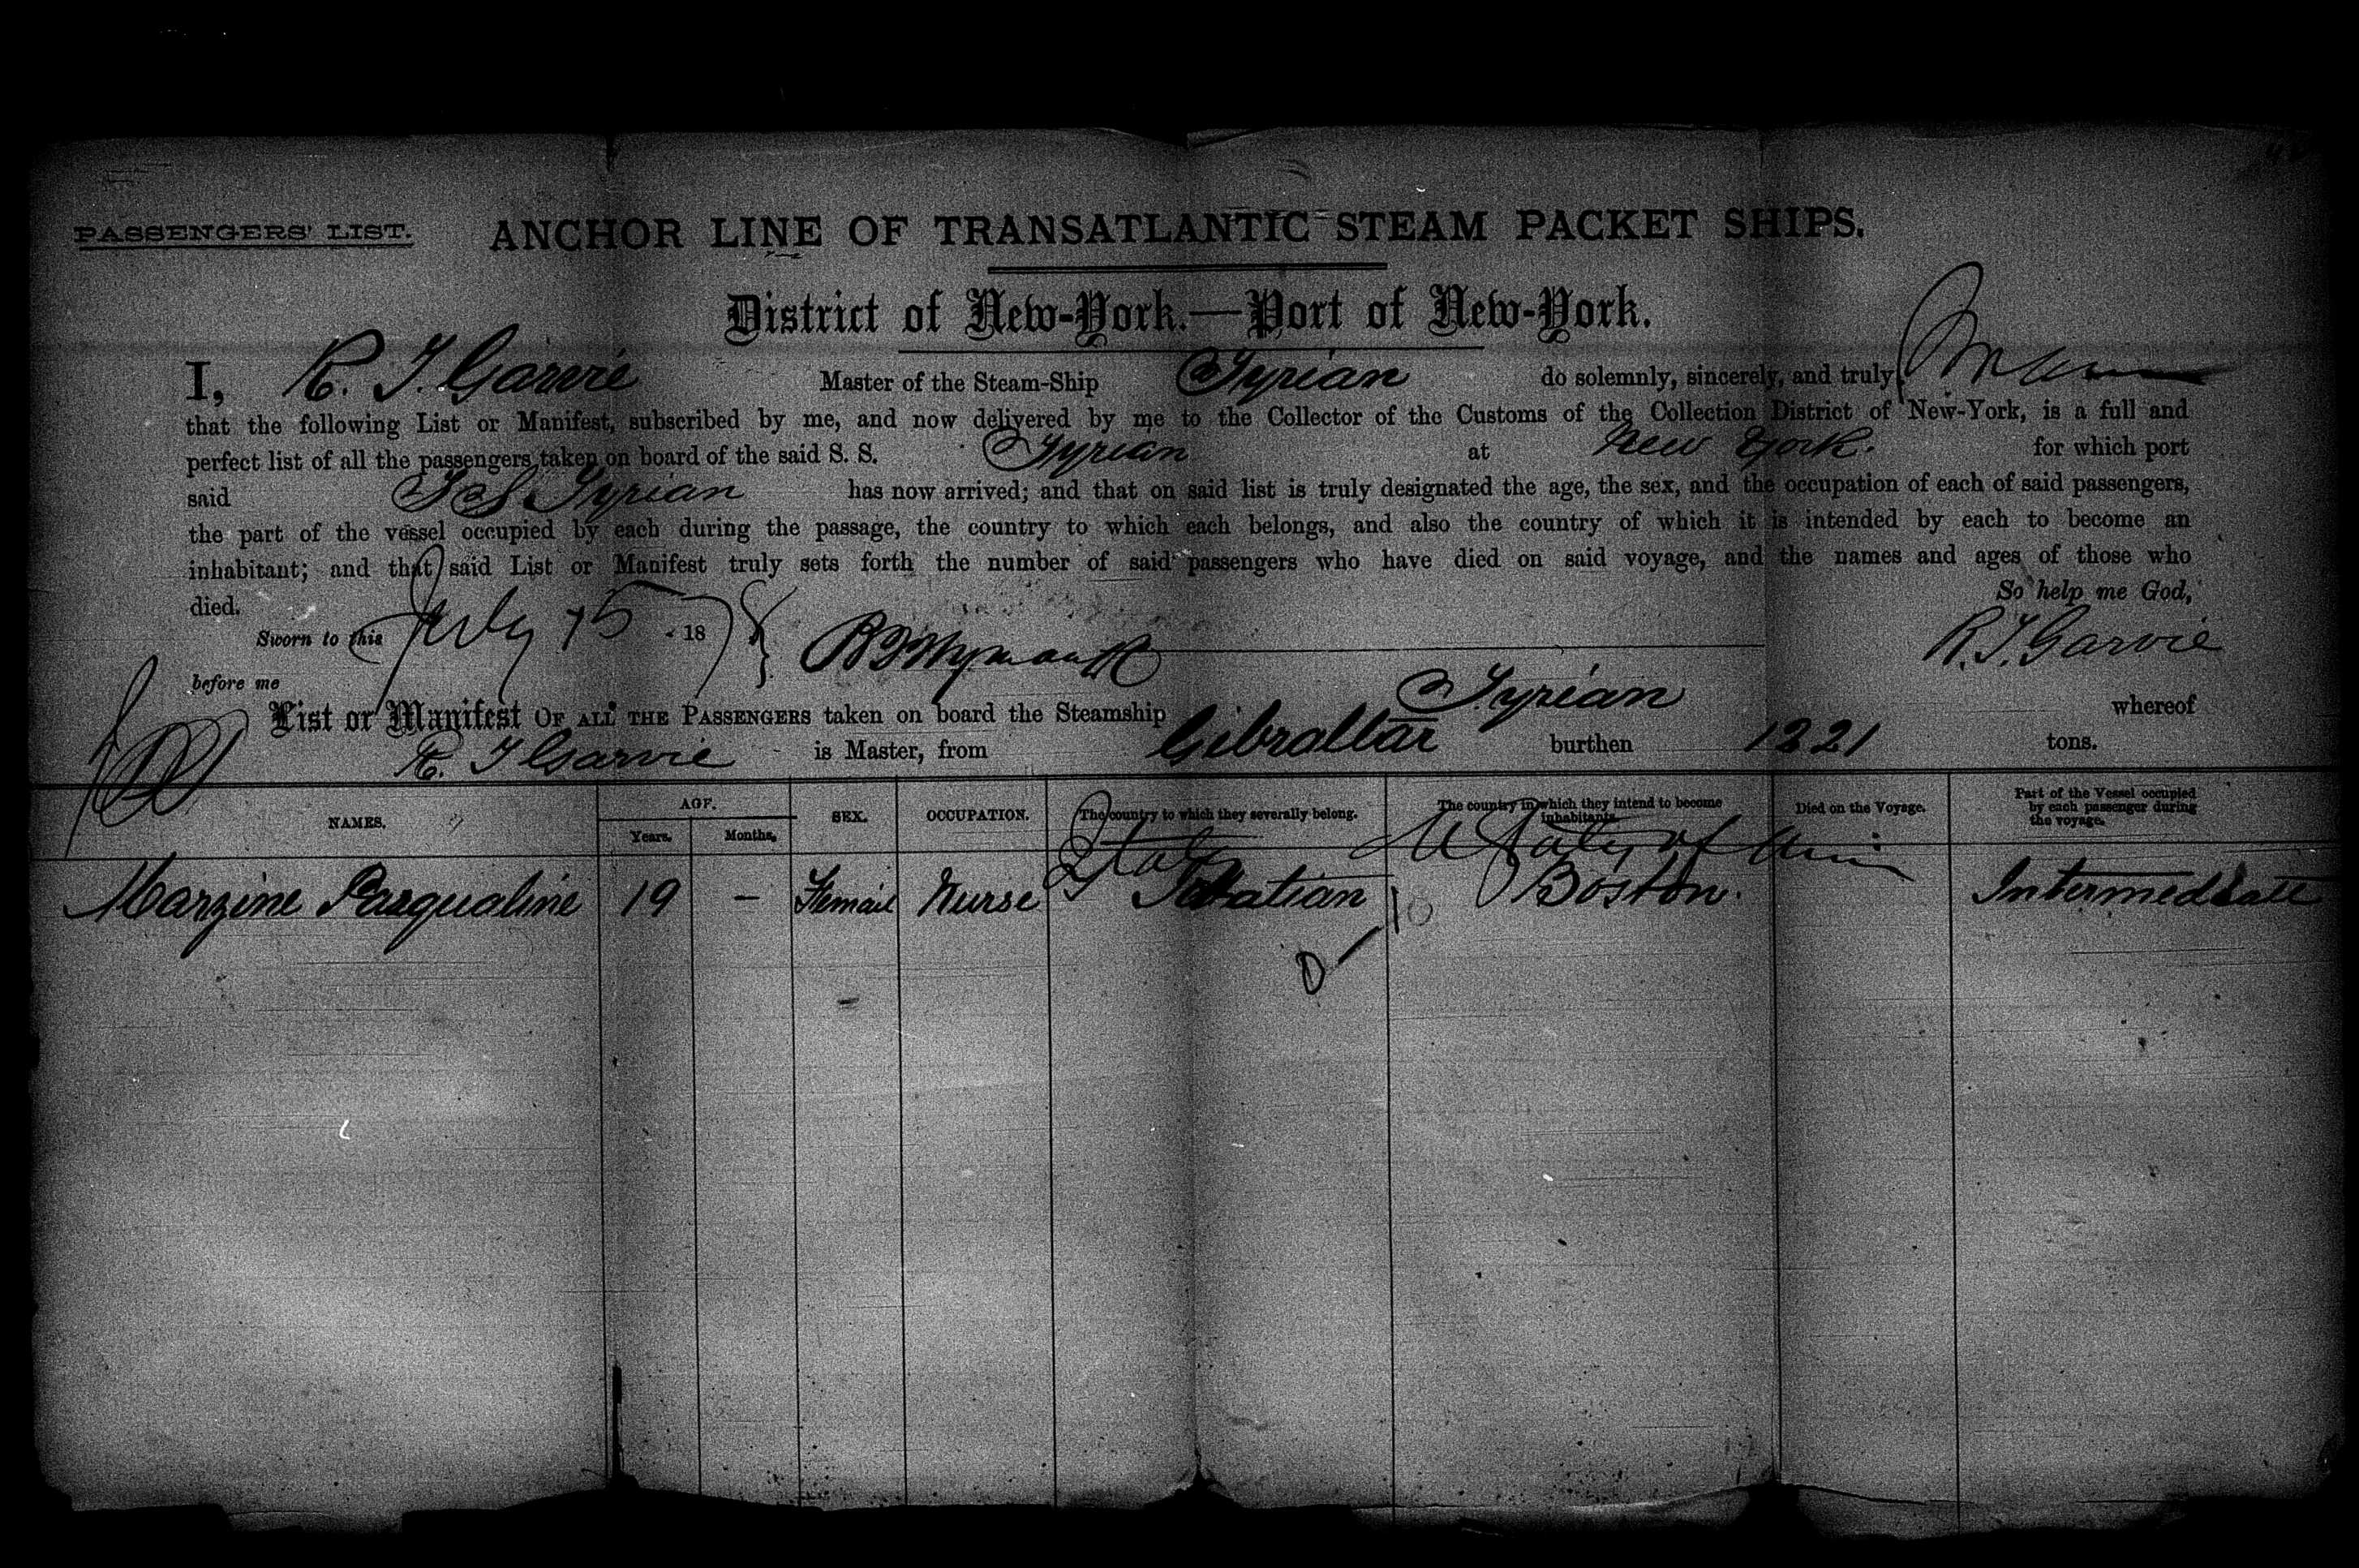 PASSENGERS' LIST. ANCHOR LINE OF TRANSATLANTIC STEAM PACKET SHIPS.
District of New-York.—Port of New-York.
I, R. T. Garvie Master of the Steam-Ship Tyrian do solemnly, sincerely, and truly,
that the following List or Manifest, subscribed by me, and now delivered by me to the Collector of the Customs of the Collection District of New-York, is a full and
perfect list of all the passengers taken on board of the said S. S. Tyrian at New York. for which port
said SS Tyrian has now arrived; and that on said list is truly designated the age, the sex, and the occupation of each of said passengers,
the part of the vessel occupied by each during the passage, the country to which each belongs, and also the country of which it is intended by each to become an
inhabitant; and that said List or Manifest truly sets forth the number of said passengers who have died on said voyage, and the names and ages of those who
died. So help me God,
Sworn to this July 15 1878 R. T. Garvie
before me
List or Manifest OF ALL THE PASSENGERS taken on board the Steamship Tyrian whereof
R. T Garvie is Master, from Gibraltar burthen 1221 tons.
NAMES. AGE. SEX. OCCUPATION. The country to which they severally belong. The country in which they intend to become inhabitants. Died on the Voyage. Part of the Vessel occupied by each passenger during the voyage.
Years. Months.
Italy
Marzine Pasqualine 19 – Femail Nurse Boston. Intermediate